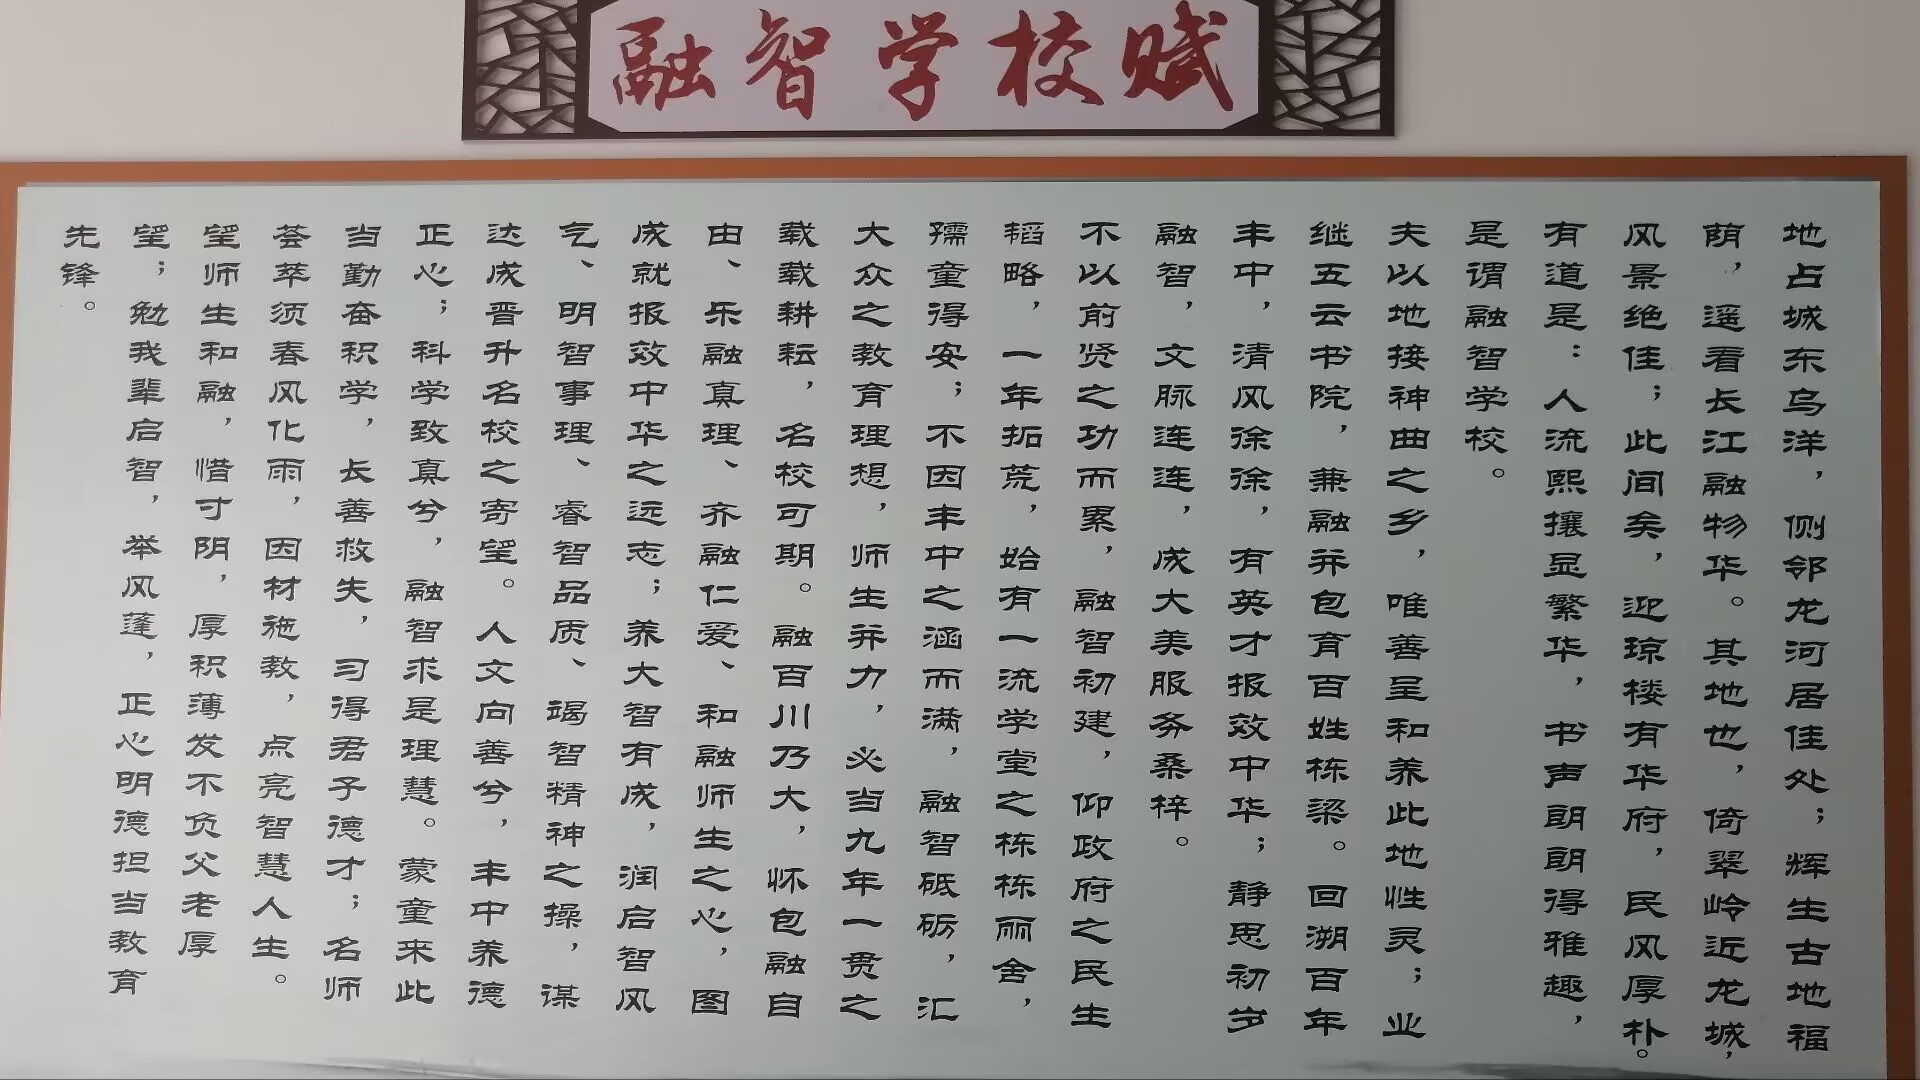 融智学校赋
地占城东乌洋，侧邻龙河居佳处；辉生古地福
荫，遥看长江融物华。其地也，倚翠岭近龙城，
风景绝佳；此间矣，迎琼楼有华府，民风厚朴。
有道是：人流熙攘显繁华，书声朗朗得雅趣，
是谓融智学校。
夫以地接神曲之乡，唯善呈和养此地性灵；业
继五云书院，兼融并包育百姓栋梁。回溯百年
丰中，清风徐徐，有英才报效中华；静思初岁
融智，文脉连连，成大美服务桑梓。
不以前贤之功而累，融智初建，仰政府之民生
韬略，一年拓荒，始有一流学堂之栋栋丽舍，
孺童得安；不因丰中之涵而满，融智砥砺，汇
大众之教育理想，师生并力，必当九年一贯之
载载耕耘，名校可期。融百川乃大，怀包融自
由、乐融真理、齐融仁爱、和融师生之心，图
成就报效中华之远志；养大智有成，润启智风
气、明智事理、睿智品质、竭智精神之操，谋
达成晋升名校之寄望。人文向善兮，丰中养德
正心；科学致真兮，融智求是理慧。蒙童来此
当勤奋积学，长善救失，习得君子德才；名师
荟萃须春风化雨，因材施教，点亮智慧人生。
望师生和融，惜寸阴，厚积薄发不负父老厚
望；勉我辈启智，举风蓬，正心明德担当教育
先锋。